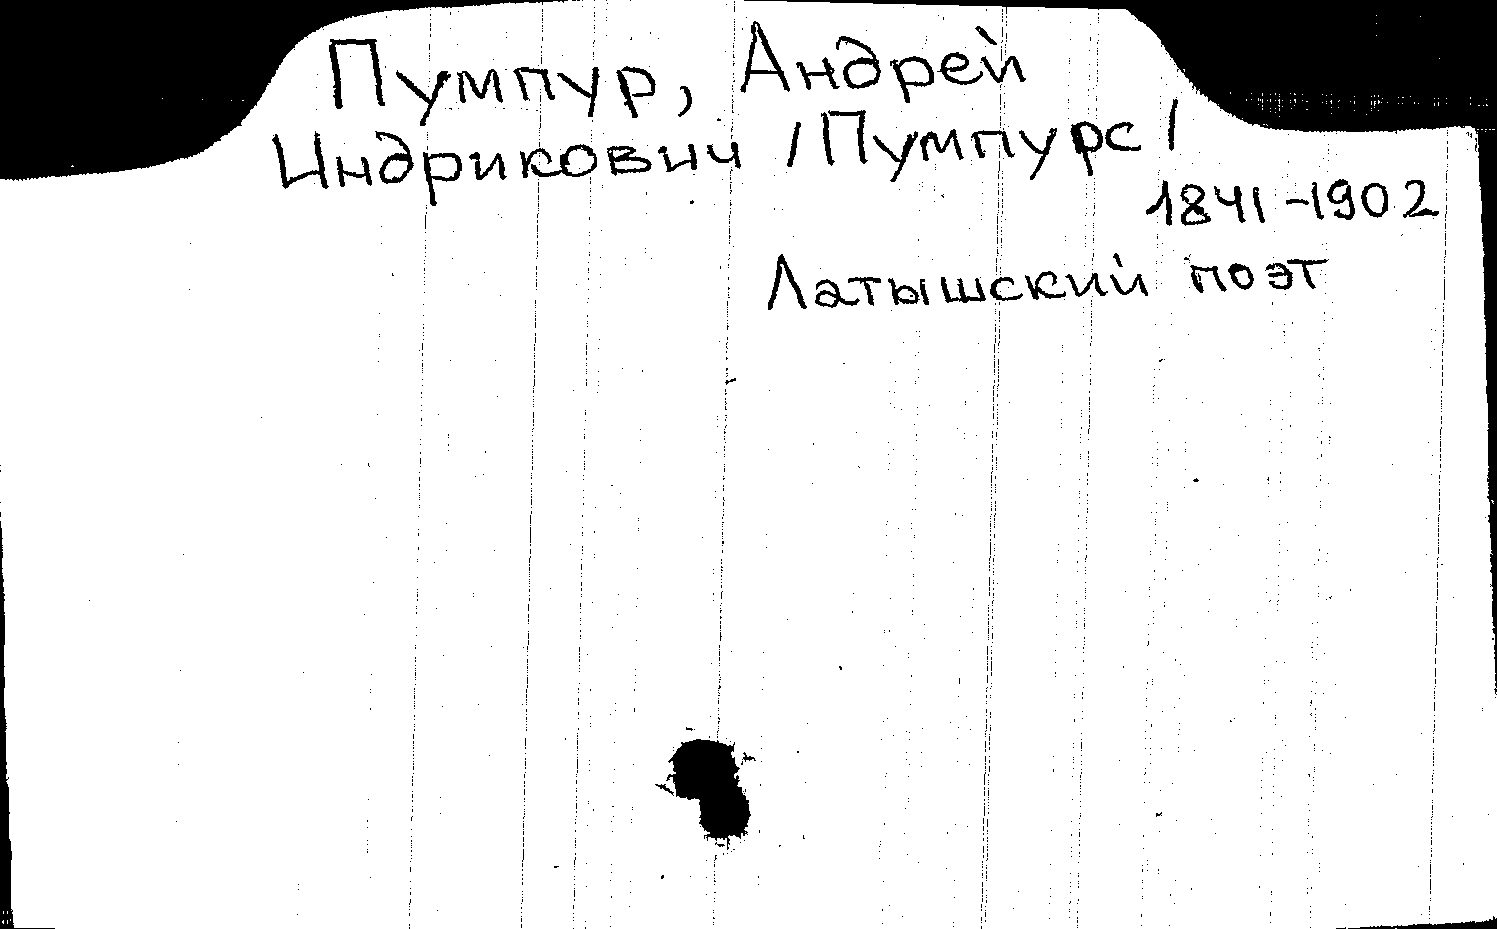 Пумпур, Андрей
Индрикович /Пумпурс/
1841-1902
Латышский поэт